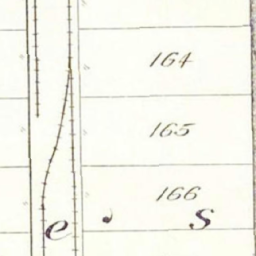 164
165
166
e s